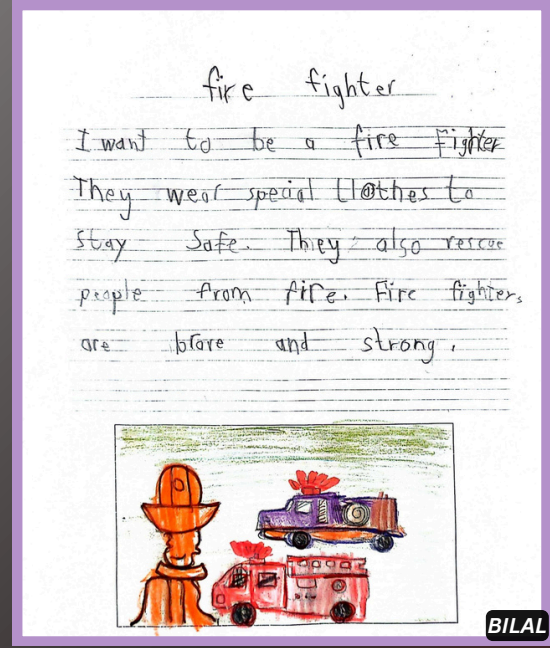 fire fighter
I want to be a fire fighter
They wear special Clothes to
stay safe. They also rescue
people from fire. Fire fighters
are brave and strong.
BILAL